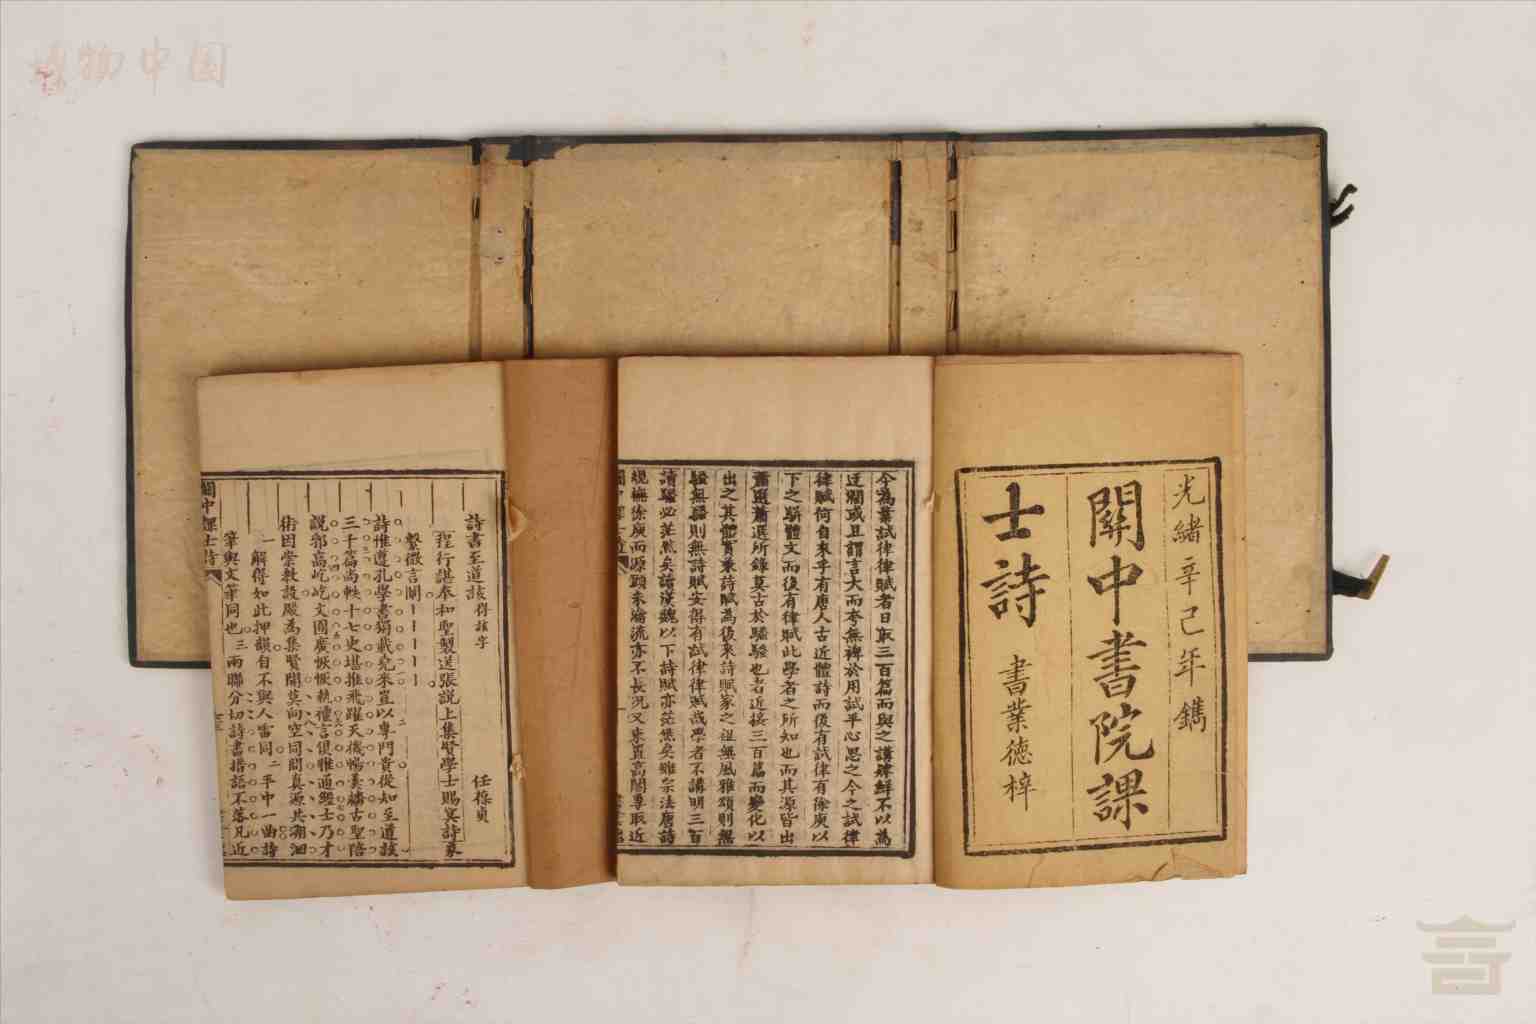 博物中国
光緒辛己年鐫
關中書院課
士詩
書業德梓
今為業試律律賦者日取三百篇而與之講肄鮮不以為
迂闊或且謂言大而夸無裨於用試平心思之今之試律
律賦何自來乎有唐人古近體詩而後有試律有徐庾以
下之駢體文而後有律賦此學者之所知也而其源皆出
蕭選蕭選所錄莫古於騷騷也者近接三百篇而變化以
出之其體實兼詩賦為後來詩賦家之祖無風雅頌則無
騷無騷則無詩賦安得有試律律賦哉學者不講明三百
讀騷必茫然矣讀漢魏以下詩賦亦茫然矣雖宗法唐詩
規橅徐庾而源頭未濬流亦不長況又束置高閣專取近
詩書至道該 得該字 任葆貞
程行諶奉和聖製送張說上集賢學士賜宴詩篆
繫微言闡
詩惟遵孔學書獨載堯來豈以專門貴從知至道該
三千篇尚軼十七史堪推飛躍天機暢羹牆古聖陪
說郛高屹屹文囿廣恢恢執禮言俱雅通經士乃才
術因崇教設殿為集賢開莫向空同問真源共溯洄
一解得如此押韻自不與人雷同二平中一曲詩
筆與文筆同也三兩聯分切詩書措語不落凡近
關中課士詩